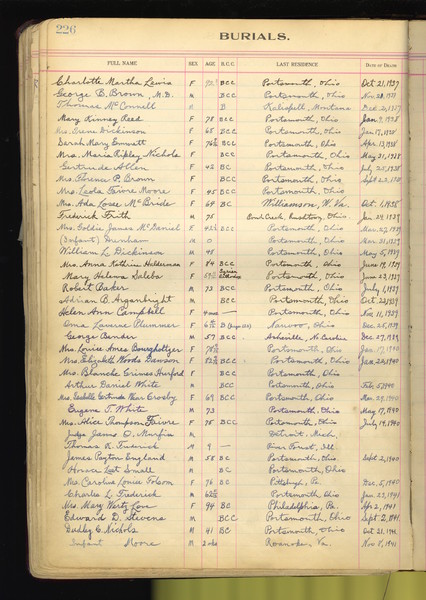 226
BURIALS.
FULL NAME SEX AGE B.U.C. LAST RESIDENCE DATE OF DEATH
Charlotte Martha Lewis F BCC Portsmouth, Ohio Oct 21, 1937
George B. Brown, M.D. M BCC Portsmouth, Ohio Nov 28, 1937
Thomas McConnell M B Kalispell, Montana Dec 1937
Mary Kinney Reed F 78 BCC Portsmouth, Ohio Jan 9, 1938
Mrs. Irene Dickinson F 65 BCC Portsmouth, Ohio Jan 17, 1938
Sarah Mary Emmett F 76 BCC Portsmouth, Ohio Apr 13, 1938
Mrs. Maria Ripley Nichols F BCC Portsmouth, Ohio May 31, 1938
Gertrude Allen F 42 BC Portsmouth, Ohio July 25, 1938
Mrs. Florence P. Brown F BCC Portsmouth, Ohio Sept 22, 1938
Mrs. Leola Faivre Moore F 45 BCC Portsmouth, Ohio
Mrs. Ada Losee McBride F 64 BC Williamson, W. Va. Oct 1, 1938
Frederick Frith M 75 Pond Creek, Rushtown, Ohio Jan 24, 1939
Mrs. Goldie James McDaniel F 42 BCC Portsmouth, Ohio Mar 27, 1939
(Infant) Dunham M 0 Portsmouth, Ohio Mar 31, 1939
William L. Dickinson M 41 Portsmouth, Ohio May 5, 1939
Mrs. Anna Kathrin Halderman F 84 BCC Portsmouth, Ohio June 19, 1939
Mary Helena Saleba F Portsmouth, Ohio June 23, 1939
Robert Baker M 73 BCC Portsmouth, Ohio July 1, 1939
Adrian B. Argenbright M BCC Portsmouth, Ohio Oct 22, 1939
Helen Ann Campbell F 4 mos — Portsmouth, Ohio Nov 11, 1939
Oma Laurie Plummer F 6 B Ohio Dec 25, 1939
George Bender M 57 BCC Asheville, N. Carolina Dec 27, 1939
Mrs. Louise Ames F 76 Portsmouth, Ohio Jan 17, 1940
Mrs. Elizabeth Woods Dawson F 82 BCC Portsmouth, Ohio Jan 22, 1940
Mrs. Blanche Grimes Hurford F BCC Portsmouth, Ohio
Arthur Daniel White M BCC Portsmouth, Ohio Feb 5, 1940
Mrs. Isabelle Gertrude Crosby F 69 BCC Portsmouth, Ohio Mar 29, 1940
Eugene T. White M 73 Portsmouth, Ohio May 7, 1940
Mrs. Alice Thompson Faivre F 75 BCC Portsmouth, Ohio July 14, 1940
Judge James O. Murfin M Detroit, Mich.
Thomas R. Frederick M 9 — Forest, Ill.
James Peyton England M 58 BC Portsmouth, Ohio Sept 3, 1940
Horace Leet Small M BC Portsmouth, Ohio
Mrs. Caroline Louise Folsom F 76 BC Pittsburgh, Pa. Dec 5, 1940
Charles L. Frederick M 62 Portsmouth, Ohio Jan 23, 1941
Mrs. Mary Wertz Love F 94 BC Philadelphia, Pa. Apr 2, 1941
Edward D. Stevens M BCC Portsmouth, Ohio Sept 2, 1941
Dudley C. Nichols M 41 BC Portsmouth, Ohio Oct 21, 1941
Infant Moore M Roanoke, Va. Nov 8, 1941